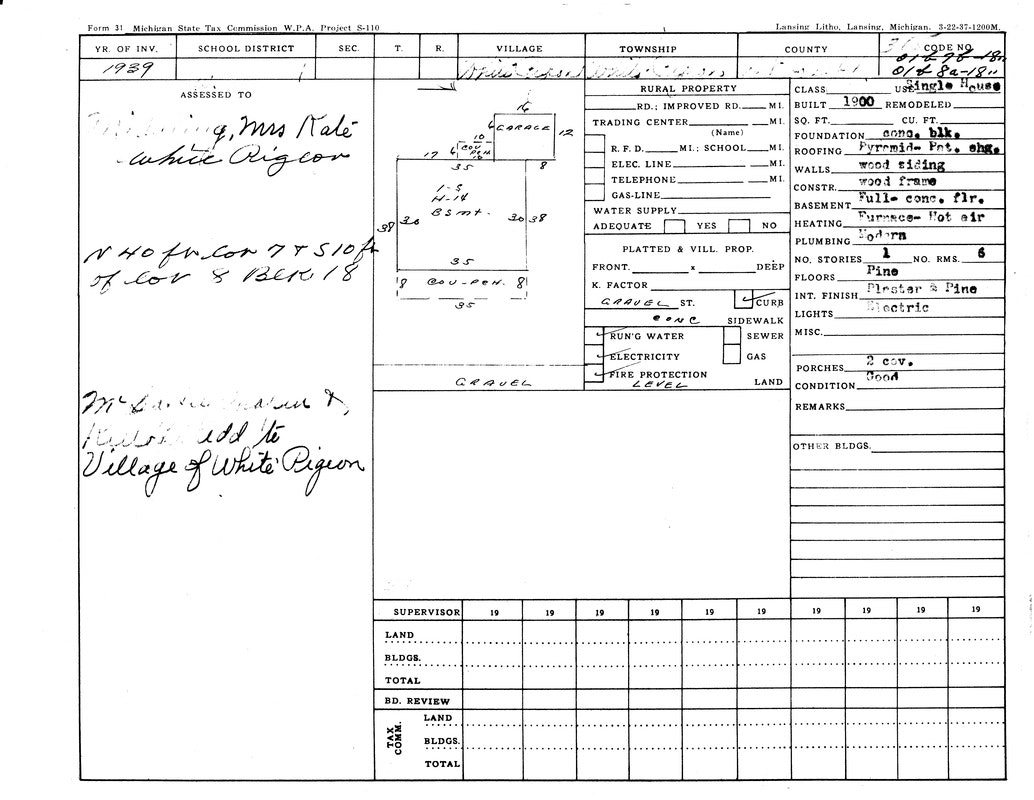 Form 31 Michigan State Tax Commission W.P.A. Project S-110
Lansing Litho, Lansing, Michigan. 3-22-37-1200M.
YR. OF INV. SCHOOL DISTRICT SEC. T. R. VILLAGE TOWNSHIP COUNTY CODE NO.
1939
ASSESSED TO
Mrs Kate
White Pigeon
N 40 ft Lot 7 & S 10 ft
of Lot 8 BLK 18
add to
Village of White Pigeon
16
6 GARAGE 12
10
6 COV PCH
10
17 35 8
1-S
H-14
Bsmt.
38 30 30 38
35
8 COV-PCH. 8
35
GRAVEL
RURAL PROPERTY
RD.; IMPROVED RD. MI.
TRADING CENTER MI.
(Name)
R. F. D. MI.; SCHOOL MI.
ELEC. LINE MI.
TELEPHONE MI.
GAS-LINE
WATER SUPPLY
ADEQUATE YES NO
PLATTED & VILL. PROP.
FRONT. x DEEP
K. FACTOR
GRAVEL ST. CURB
CONC SIDEWALK
RUN'G WATER SEWER
ELECTRICITY GAS
FIRE PROTECTION
LEVEL LAND
CLASS. USE Single House
BUILT 1900 REMODELED
SQ. FT. CU. FT.
FOUNDATION conc. blk.
ROOFING Pyramid- Pat. shg.
WALLS wood siding
CONSTR. wood frame
BASEMENT Full- conc. flr.
HEATING Furnace- Hot air
PLUMBING Modern
NO. STORIES 1 NO. RMS. 6
FLOORS Pine
INT. FINISH Plaster & Pine
LIGHTS Electric
MISC.
PORCHES 2 cov.
CONDITION Good
REMARKS
OTHER BLDGS.
SUPERVISOR 19 19 19 19 19 19 19 19 19 19
LAND
BLDGS.
TOTAL
BD. REVIEW
TAX COMM.
LAND
BLDGS.
TOTAL